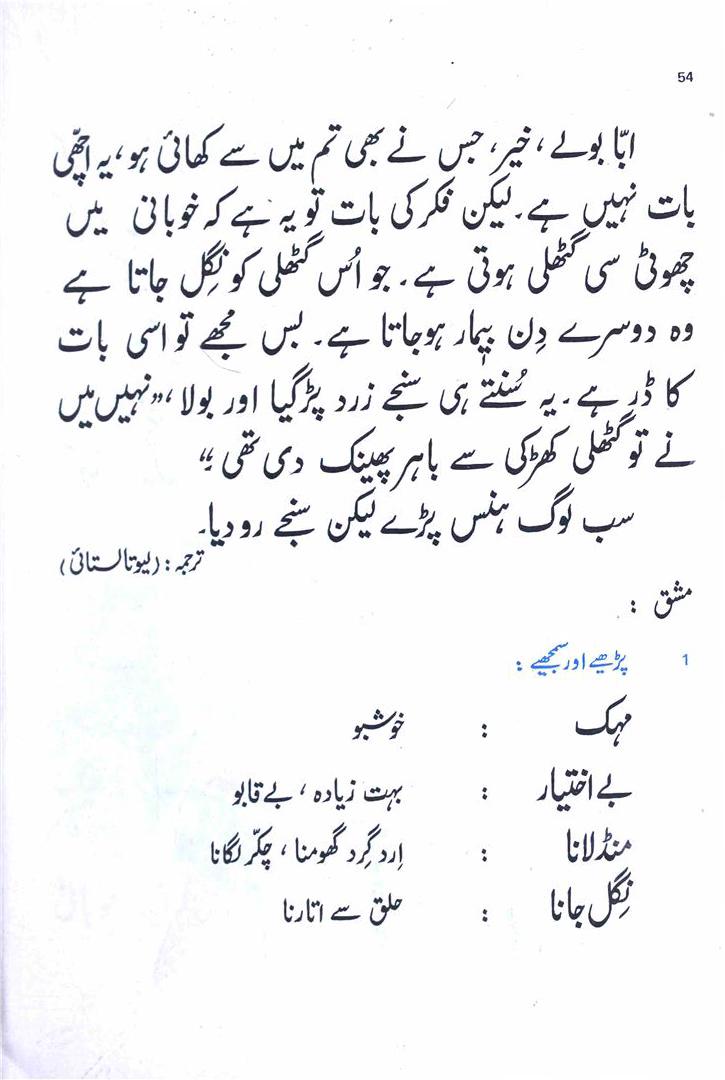 54
ابّا بولے، خیر، جس نے بھی تم میں سے کھائی ہو، یہ اچھّی
بات نہیں ہے۔ لیکن فکر کی بات تو یہ ہے کہ خوبانی میں
چھوٹی سی گٹھلی ہوتی ہے۔ جو اُس گٹھلی کو نِگل جاتا ہے
وہ دوسرے دِن بیمار ہوجاتا ہے۔ بس مجھے تو اسی بات
کا ڈر ہے۔ یہ سُنتے ہی سنجے زرد پڑگیا اور بولا، ”نہیں میں
نے تو گٹھلی کھڑکی سے باہر پھینک دی تھی۔“
سب لوگ ہنس پڑے لیکن سنجے رو دیا۔
ترجمہ: (لیوتالستائی)
مشق :
1 پڑھیے اور سمجھیے :
مہک : خوشبو
بے اختیار : بہت زیادہ، بے قابو
منڈلانا : اِرد گِرد گھومنا، چکّر لگانا
نِگل جانا : حلق سے اتارنا